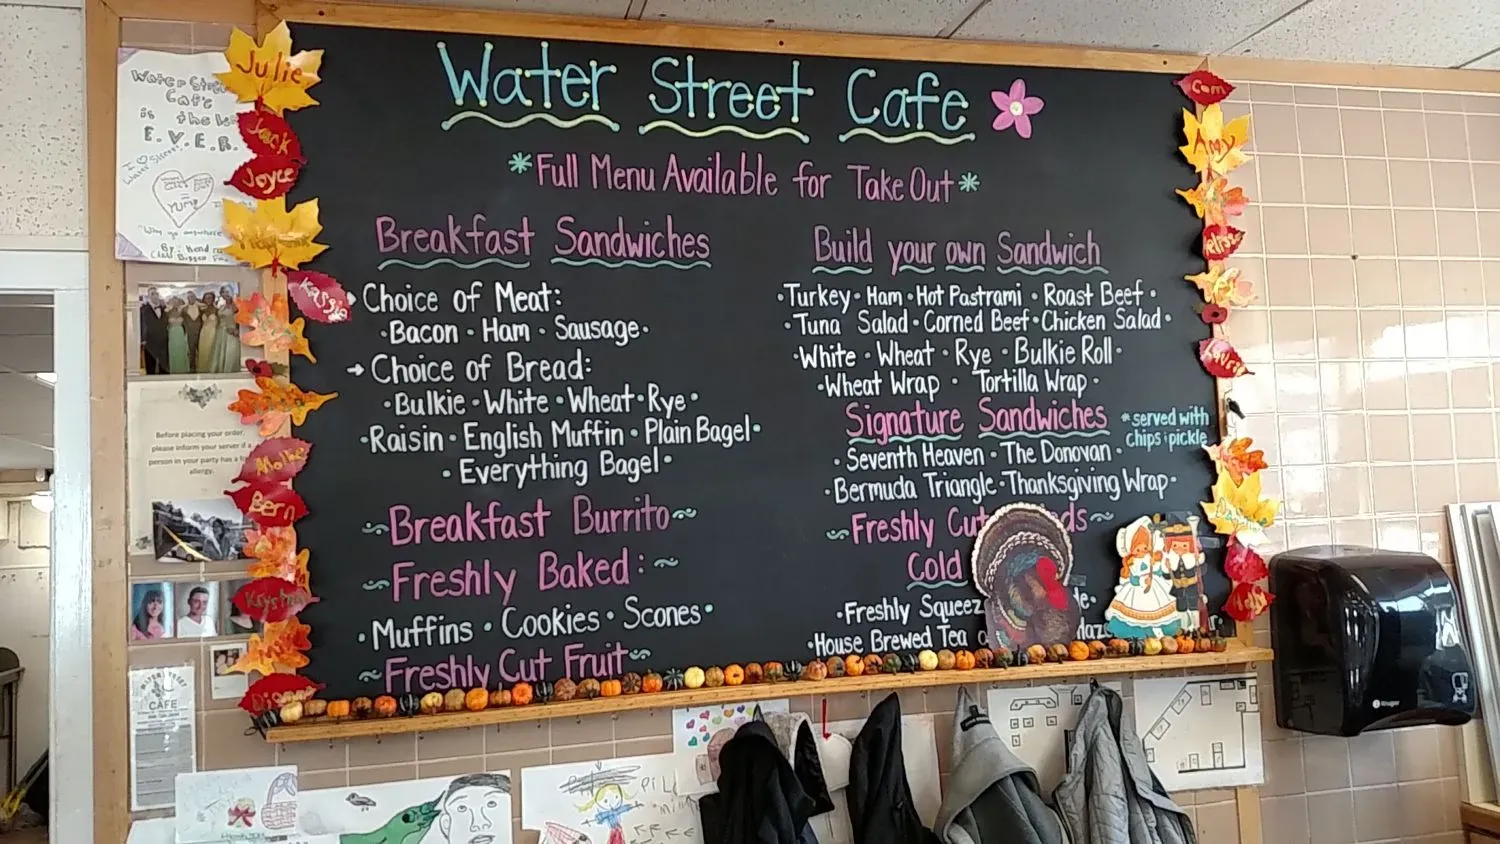 Water Street Cafe
*Full Menu Available for Take Out*
Breakfast Sandwiches
→ Choice of Meat:
• Bacon • Ham • Sausage •
→ Choice of Bread:
• Bulkie • White • Wheat • Rye •
• Raisin • English Muffin • Plain Bagel •
• Everything Bagel •
~Breakfast Burrito~
~Freshly Baked:~
• Muffins • Cookies • Scones •
~Freshly Cut Fruit~
Build your own Sandwich
• Turkey • Ham • Hot Pastrami • Roast Beef •
• Tuna Salad • Corned Beef • Chicken Salad •
• White • Wheat • Rye • Bulkie Roll •
• Wheat Wrap • Tortilla Wrap •
Signature Sandwiches
*served with
chips & pickle
• Seventh Heaven • The Donovan •
• Bermuda Triangle • Thanksgiving Wrap •
~Freshly Cut
Cold
• Freshly Squeez
• House Brewed Tea
Julie
Jack
Joyce
Kassie
Mollie
Bern
Krystin
Cam
Amy
Water Street
Cafe
is the
E.V.E.R.
YUMP
Before placing your order,
please inform your server if a
person in your party has a
allergy.
WATER STREET
CAFE